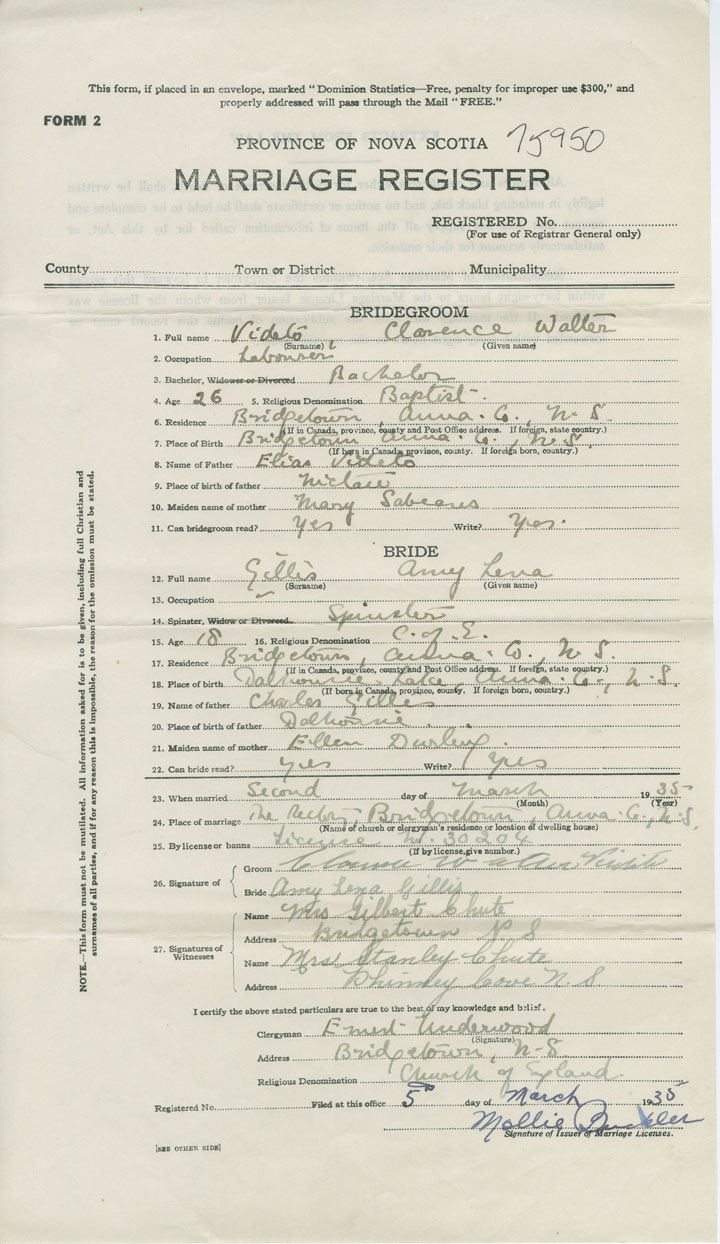 This form, if placed in an envelope, marked "Dominion Statistics—Free, penalty for improper use $300," and
properly addressed will pass through the Mail "FREE."
FORM 2
PROVINCE OF NOVA SCOTIA 75950
MARRIAGE REGISTER
REGISTERED No.
(For use of Registrar General only)
County Town or District Municipality
BRIDEGROOM
1. Full name Videto Clarence Walter
(Surname) (Given name)
2. Occupation Labourer
3. Bachelor, Widower or Divorced Bachelor
4. Age 26 5. Religious Denomination Baptist
6. Residence Bridgetown, Anna. Co., N. S.
(If in Canada, province, county and Post Office address. If foreign, state country.)
7. Place of Birth Bridgetown Anna. Co., N. S.
(If born in Canada, province, county. If foreign born, country.)
8. Name of Father Elias Videto
9. Place of birth of father Nictaux
10. Maiden name of mother Mary Sabeans
11. Can bridegroom read? Yes Write? Yes.
BRIDE
12. Full name Gillis Amy Lena
(Surname) (Given name)
13. Occupation
14. Spinster, Widow or Divorced Spinster
15. Age 18 16. Religious Denomination C. of E.
17. Residence Bridgetown, Anna. Co., N. S.
(If in Canada, province, county and Post Office address. If foreign, state country.)
18. Place of birth Dalhousie Lake, Anna. Co., N. S.
(If born in Canada, province, county. If foreign born, country.)
19. Name of father Charles Gillis
20. Place of birth of father Dalhousie
21. Maiden name of mother Ellen
22. Can bride read? Yes Write? Yes
23. When married Second day of March 1935
(Month) (Year)
24. Place of marriage The Rectory, Bridgetown, Anna. Co., N. S.
(Name of church or clergyman's residence or location of dwelling house)
25. By license or banns License No 30304
(If by license, give number.)
26. Signature of
Groom Clarence Walter Videto
Bride Amy Lena Gillis
27. Signatures of Witnesses
Name Mrs Gilbert Chute
Address Bridgetown N S
Name Mrs Stanley Chute
Address Phinney Cove N. S
I certify the above stated particulars are true to the best of my knowledge and belief.
Clergyman Ernest Underwood
(Signature)
Address Bridgetown, N-S
Religious Denomination Church of England.
Registered No. Filed at this office 5th day of March 1935
Mollie
Signature of Issuer of Marriage Licenses.
[SEE OTHER SIDE]
NOTE.—This form must not be mutilated. All information asked for is to be given, including full Christian and
surnames of all parties, and if for any reason this is impossible, the reason for the omission must be stated.